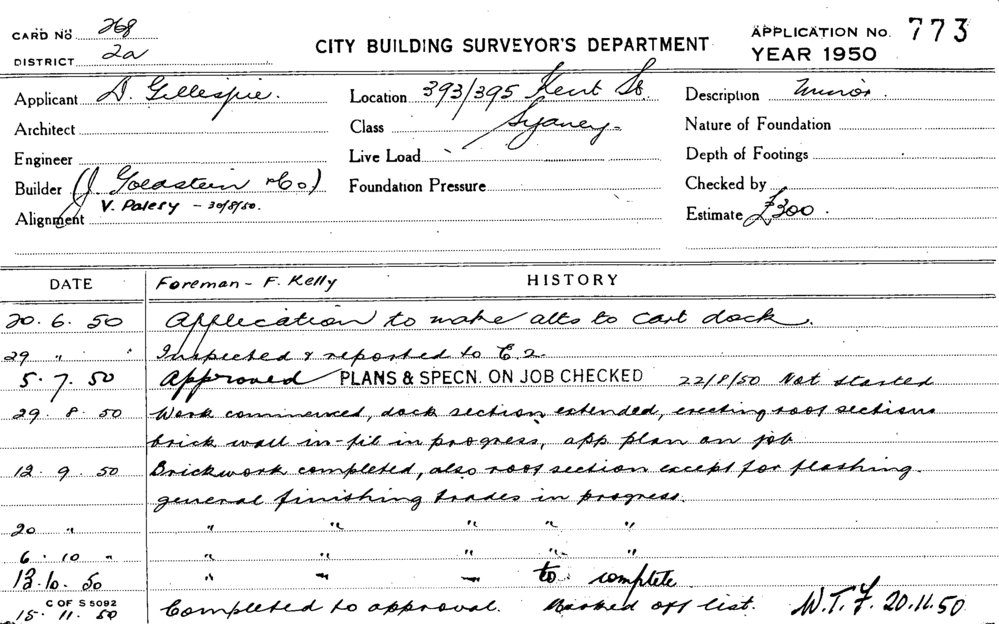 CARD No 268
DISTRICT 2a
CITY BUILDING SURVEYOR'S DEPARTMENT
APPLICATION No. 773
YEAR 1950
Applicant D. Gillespie. Location 393/395 Kent St. Description Minor.
Architect Class Sydney. Nature of Foundation
Engineer Live Load Depth of Footings
Builder (J Goldstein & Co) Foundation Pressure Checked by
V. Palesy - 30/8/50.
Alignment Estimate £300.
DATE Foreman - F. Kelly HISTORY
20. 6. 50 Application to make alts to cart dock.
29 " " Inspected & reported to E.2.
5. 7. 50 Approved PLANS & SPECN. ON JOB CHECKED 22/8/50 Not started
29. 8. 50 Work commenced, dock section extended, erecting roof sections
brick wall in-fil in progress, app plan on job
12. 9. 50 Brickwork completed, also roof section except for flashing.
general finishing trades in progress.
20 " " " " " "
6. 10 " " " " " "
13. 10. 50 " " " to complete
C OF S 5092
15. 11. 50 Completed to approval. Marked off list. W.T.F. 20.11.50